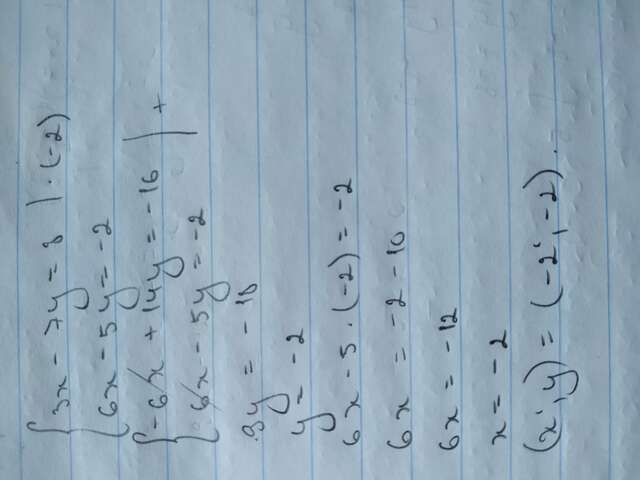 {3x - 7y = 8 | · (-2)
{6x - 5y = -2
{-6x + 14y = -16 | +
{6x - 5y = -2
9y = -18
y = -2
6x - 5 · (-2) = -2
6x = -2 - 10
6x = -12
x = -2
(x, y) = (-2, -2).